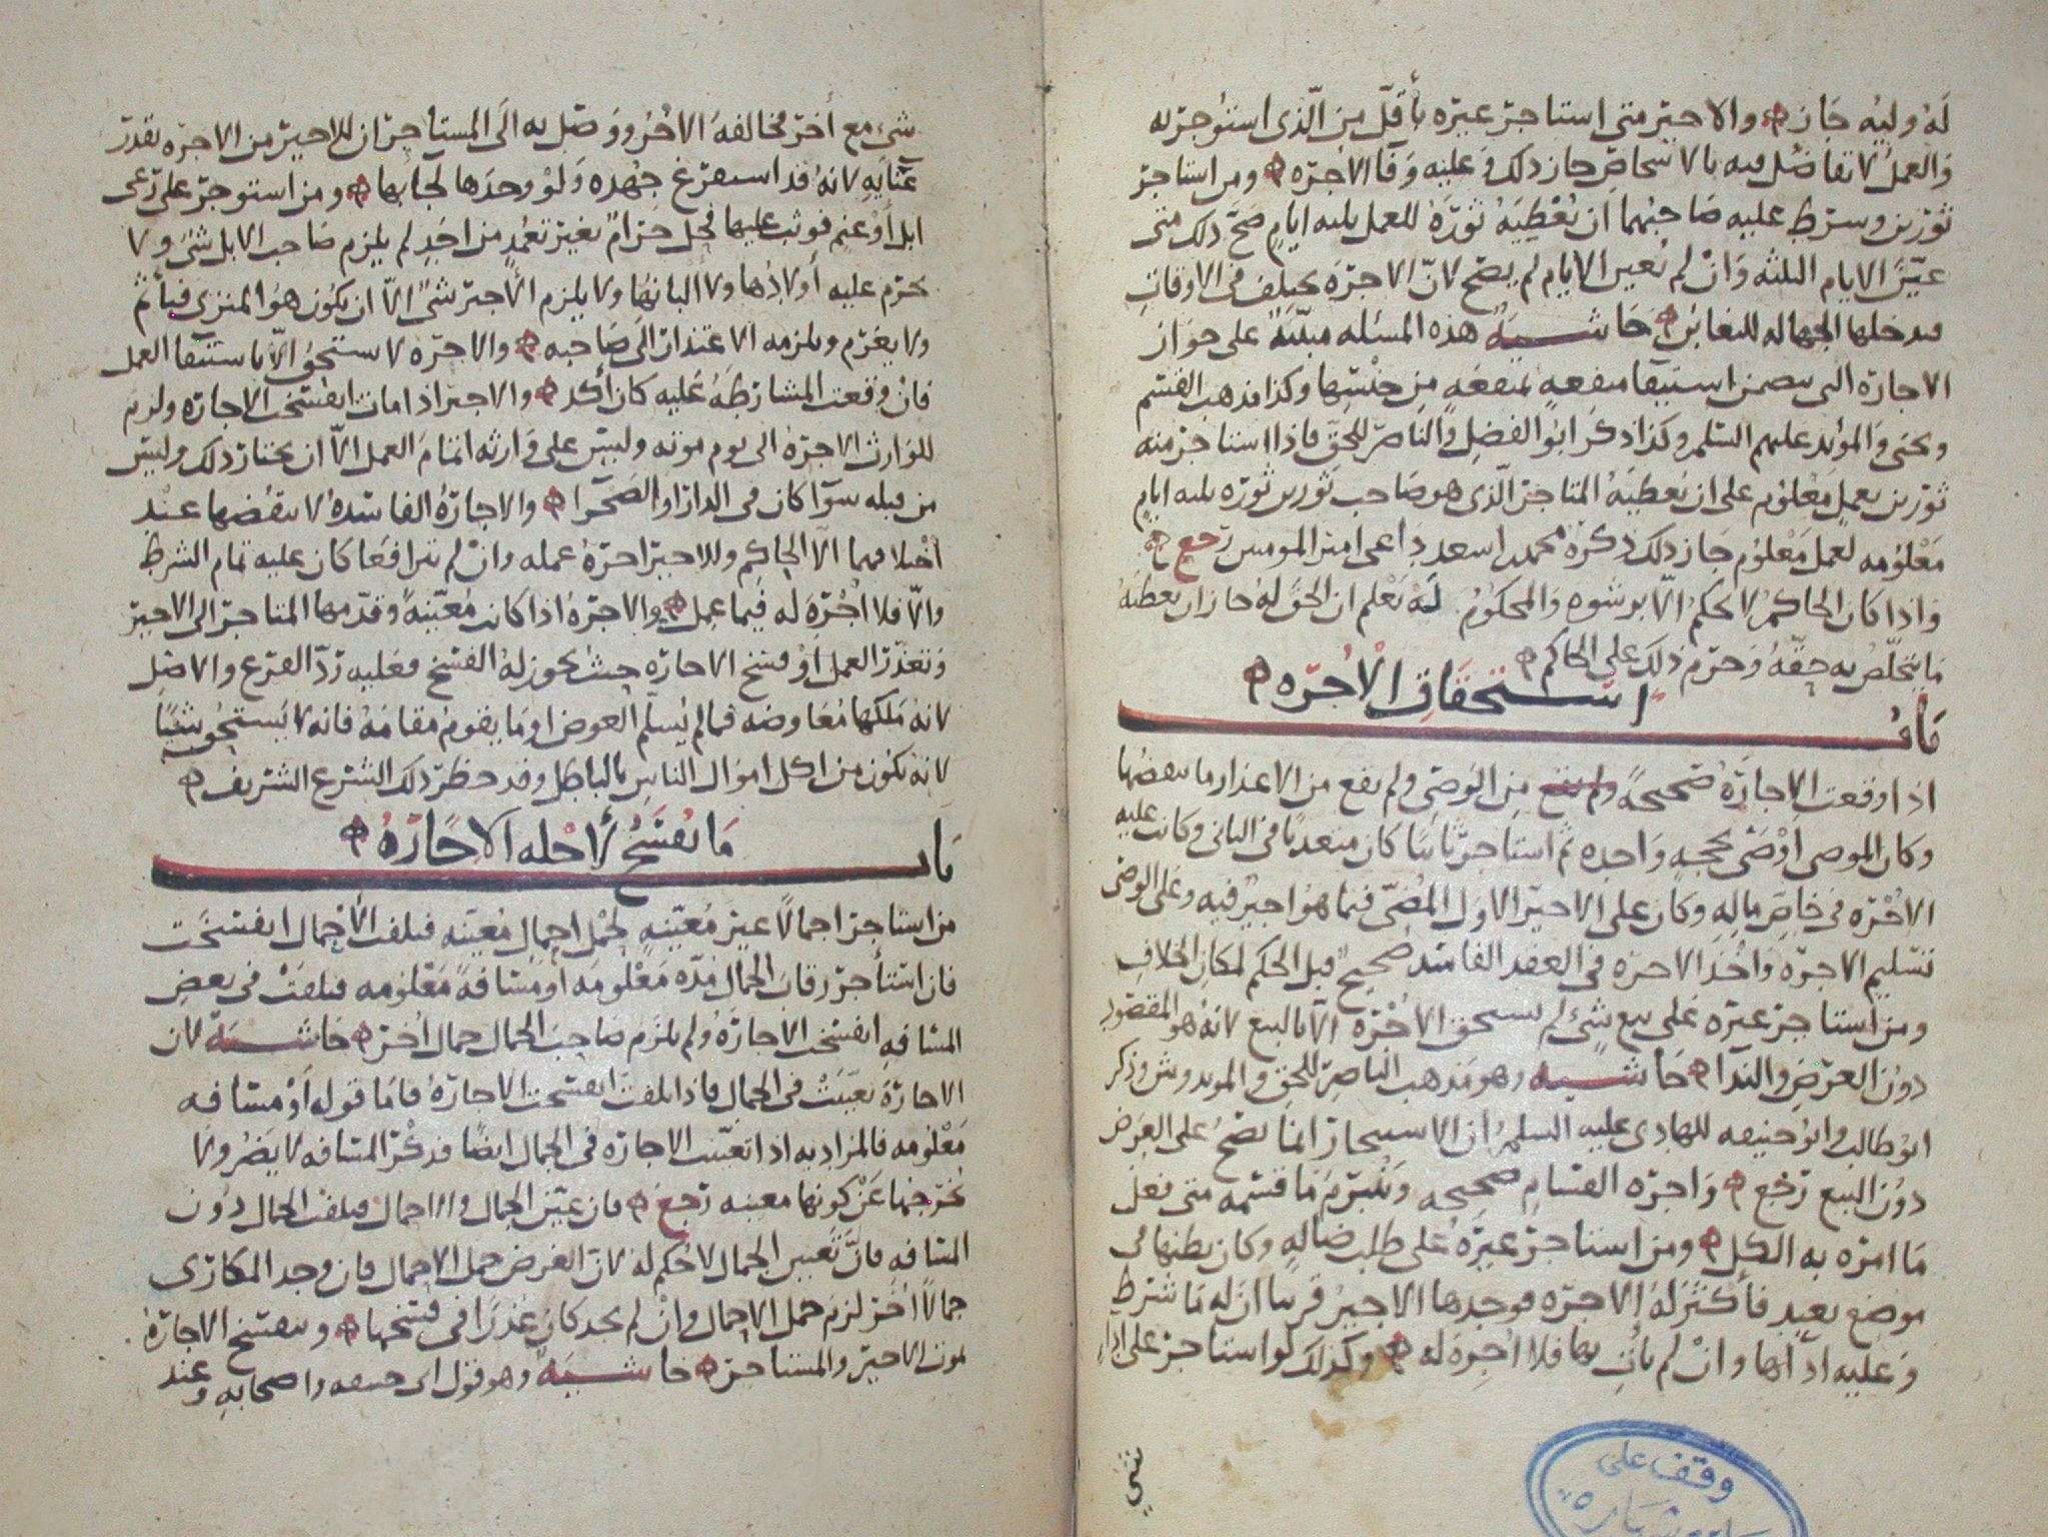 لَهُ وليُه جَاز والاجير متى استاجر غيره بأقلّ من الّذى استوجر به
وَالعمل لا تفاضل فيه بالاشخاص جاز ذلك وَعليه وَفا الاجره ومن استاجر
ثورين وشرط عليه صَاحبهما ان يُعْطِيَهُ ثورَهُ للعمل ثلثه ايامٍ صَحّ ذلك متى
عيّنَ الايام الثلثه وَانْ لم يُعين الايام لم يصّح لانّ الاجرَة يختلف فى الاوقات
فيدخلها الجهاله للتغابن حَاشيَة هذه المسئله مبنيّة على جواز
الاجازه التى تتضمن استيفا منفعهٍ بمنفعَهٍ مِن جِنْسِها وكذا مذهب القسم
ويحيى وَالمؤيد عليهم السّلم وكذا ذكرَ ابوُالفضلِ وَالناصرّ للحّق فاذا استاجر منه
ثورين بعملٍ مَعْلومٍ على ان يُعطيَهُ المتاجر الّذى هو صَاحب ثورين ثورَه ثلثه ايامٍ
مَعْلومه لعمل مَعْلوُم جَاز ذلك ذكرَهُ محمدبن اسعد داعى امير المومنين رَجع
وَاذا كان الحَاكمُ لا يحكمُ الاّ برشوهٍ وَالمحكومُ لَهُ يَعْلم ان الحقّ لهُ جاز ان يعطيَهُ
مَا يتخلّصُ به حِقّهُ وَحرَم ذلك على الحاكم
بَابُ استحقاقِ الاُجرَه
اذا وَقعت الاجَارَهُ صَحيحةً مِن الوَصّى ولم يقع من الاعذار ما ينقضها
وكان الموصى اَوْصَى بحجهٍ وَاحده ثم استاجر ثانيًا كان متعديًا فى الثانى وكانت عليه
الاُجْرَه فى خَاصّ مالِهِ وَكان على الاجير الاول المُضىّ فيما هُوَ اجيرٌ فيه وعلى الوصّى
تسّليم الاجرَه وَاخذ الاجره فى العقد الفاسد صَحيحٌ قبل الحكم لمكان الخلافِ
ومن استاجر غيرَه عَلى بيع شئٍ لم يستحق الاُجْرَه الاّ بالبيع لانهُ هو المقصُود
دون العرَضِ والندَا حَاشيه وهو مذهب الناصر للحق والمويد وش وذكر
ابُوطالب وابوُحنيفه للهادى عليه السلم ان الاستيجار انما يصحُ على العرَض
دون البيع رَجع وَاجرَه القسّام صحيحه وَتلزم مَا قسّمه متى فعل
مَا امرَه به الكل ومن استاجر غيرَهُ على طلب ضالهٍ وكان يظنها فى
موضعٍ بعيدٍ فأكثرَ لهُ الاجرَه فوجدها الاجيرُ قريبا ان لهَ مَا شرَط
وَعليه ادآها وانْ لم يأتِ بها فلا اُجرَه له وكذلك لواستاجر على اداء
شىٍ
وقف على
شئٍ مع أخرَ فخالفَهُ الاخُر ووَصّل به الَى المستاجر ان للاجير من الاجرَه بقدر
عَنَآيهِ لانهُ قد استفرَغ جهُده وَلوْ وجدَها لجَا بها ومن استوجر على رَعى
ابلٍ اَوْغنمٍ فوثب عليها فحل حَرَامٌ بغير تعَمّدٍ من احَدٍ لم يلزم صَاحب الابل شئ ولا
يحرَم عليه أولادُها ولا البانهُا ولا يلزم الأجير شئٌ الاّ ان يكون هوُالمنزى فيأثم
ولا يغرَم ويلزمه الاعتذار الىَ صَاحبه والاجرَه لا تستحقُ الاّ باستيفا العمل
فانْ وَقعت المشارَطَةُ عَليه كان أكد والاجير اذا مات انفسَخت الاجارَه ولزم
للوَارث الاجرَهُ الى يوم موته وليسَ على وَارثه اتمامُ العمل الاّ ان يختارَ ذلك وليسَ
من قبله سوآ كان فى الدار او الصَحرا والاجارَهُ الفاسدَهُ لا ينقضها عند
اختلافهما الاّ الحاكم وللاجير اجرَهُ عمله وانْ لم يترافعَا كان عليه تمام الشرط
والاّ فلا اُجْرَةِ له فيما عمل والاجرَهُ اذا كانت مُعّينهً وقدّمها المتاجر الى الاجير
وَتعذّرَ العمل اوْ فسَخ الاجارَه حيث يجوز لهُ الفسَخ فعَليه رَدّ الفرَع والاصْل
لانه مَلَكها مُعَاوضه فمالم يُسلّم العوض او مَا يقومُ مقامَهُ فانه لا يَستحق شيئًا
لانه يكون من اكل اموَال الناس بالباطل وقد حظر ذلك الشرع الشريف
بَاب مَا يفسَخُ لأجله الاجَارَهُ
من استاجر اجمالاً غيرَ مُعيّنهٍ لحمْل احمالٍ مُعيّنه فتلفت الأجْمال انفسَخت
فان استأجر رقاب الجمال مدّه مَعْلومَه او مسَافةً مَعْلومه فتلفَتْ فى بعض
المسَافهِ انفسَخت الاجارَهُ ولم يلزَم صَاحبَ الجمال جمال اُخَر حَاشيَة لان
الاجارَة تعيّنَتْ فى الجمال فاذا تلفت انفسَخت الاجارَهُ فامَا قوله اَوْ مسَافه
مَعْلومه فالمرَاد به اذا تعيّنت الاجارَه فى الجمال ايضًا فذكْر المسَافه لا يَضُر ولا
يخرَجها عَنْ كونها معينه رَجع فان عيّن الجمال والاحمال فتلفت الجمال دوُن
المسَافهِ فانّ تَعيين الجمال لاحُكم له لان الغرَض حمل الاحمال فان وجد المكارَى
جمالاً اُخَر لزمَ حمل الاحمال وانْ لم يجد كان عُذرًا فى فسَخها وينفسَخ الاجارَهُ
لموت الاجير والمستاجر حَاشيَه وهو قول ابى حنيفه واصحابهِ وعند